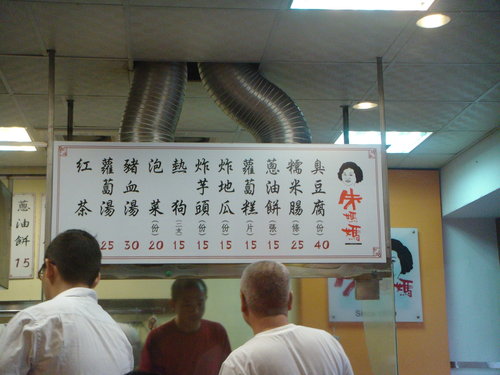 朱媽媽
臭豆腐(份)40
糯米腸(條)25
蔥油餅(張)15
蘿蔔糕(片)15
炸地瓜(份)15
炸芋頭(份)15
熱狗(支)15
泡菜(份)20
豬血湯30
蘿蔔湯25
紅茶
蔥油餅15